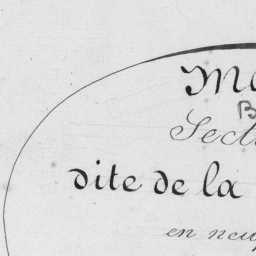 Ma
B
Secti
dite de la
en neuf